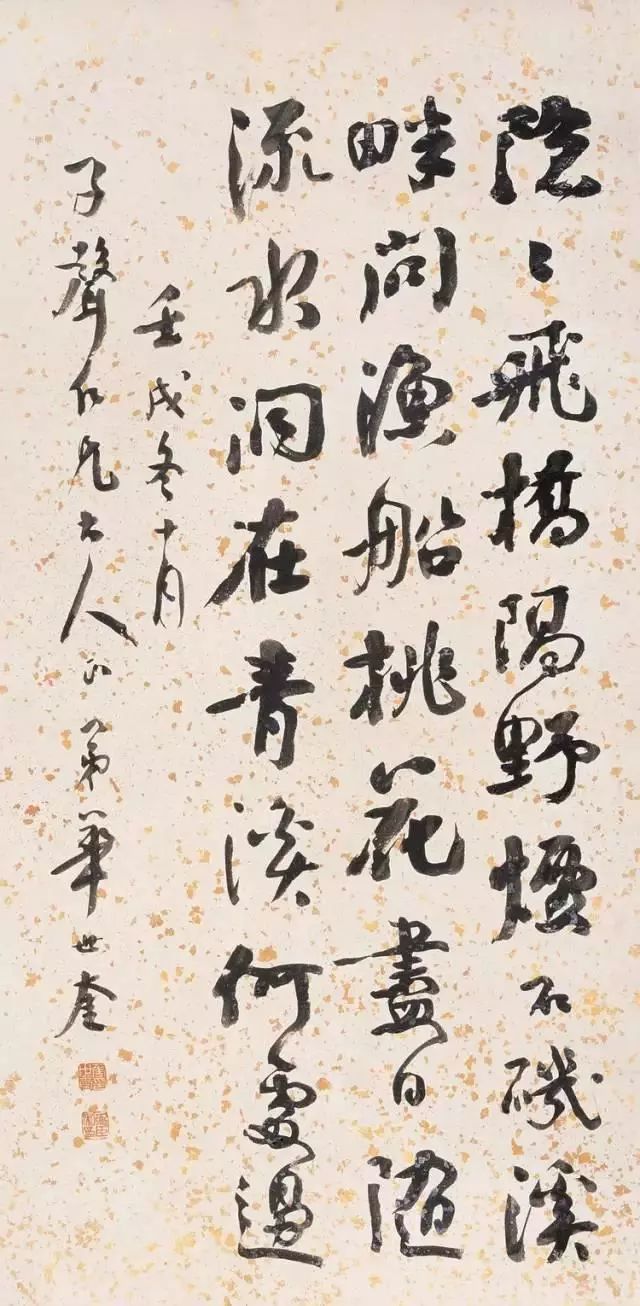 隱〻飛橋隔野煙石磯溪
畔問漁船桃花盡日隨
流水洞在青溪何處邊
壬戌冬十月
子聲仁兄大人正弟華世奎